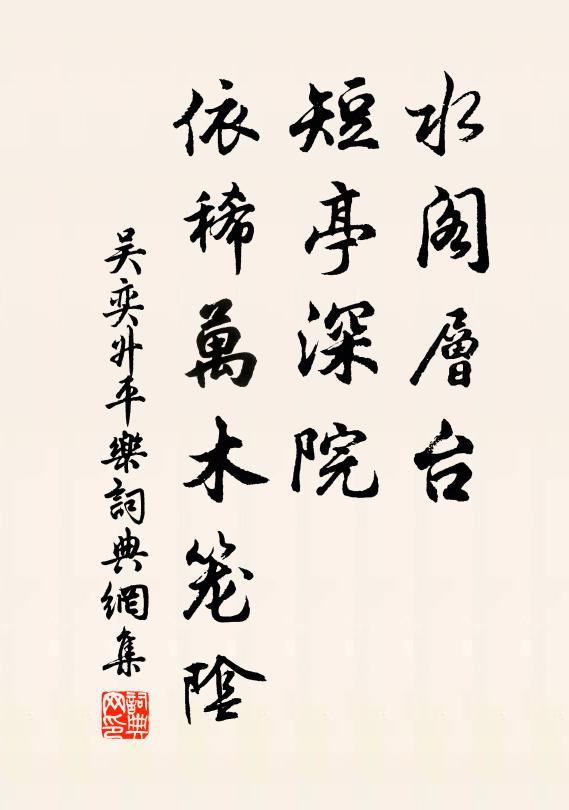 水阁層台
短亭深院
依稀萬木笼陰
吴奕升平樂詞典網集
詞典网印